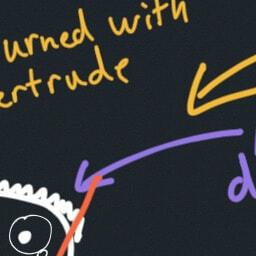 urned with
ertrude
d